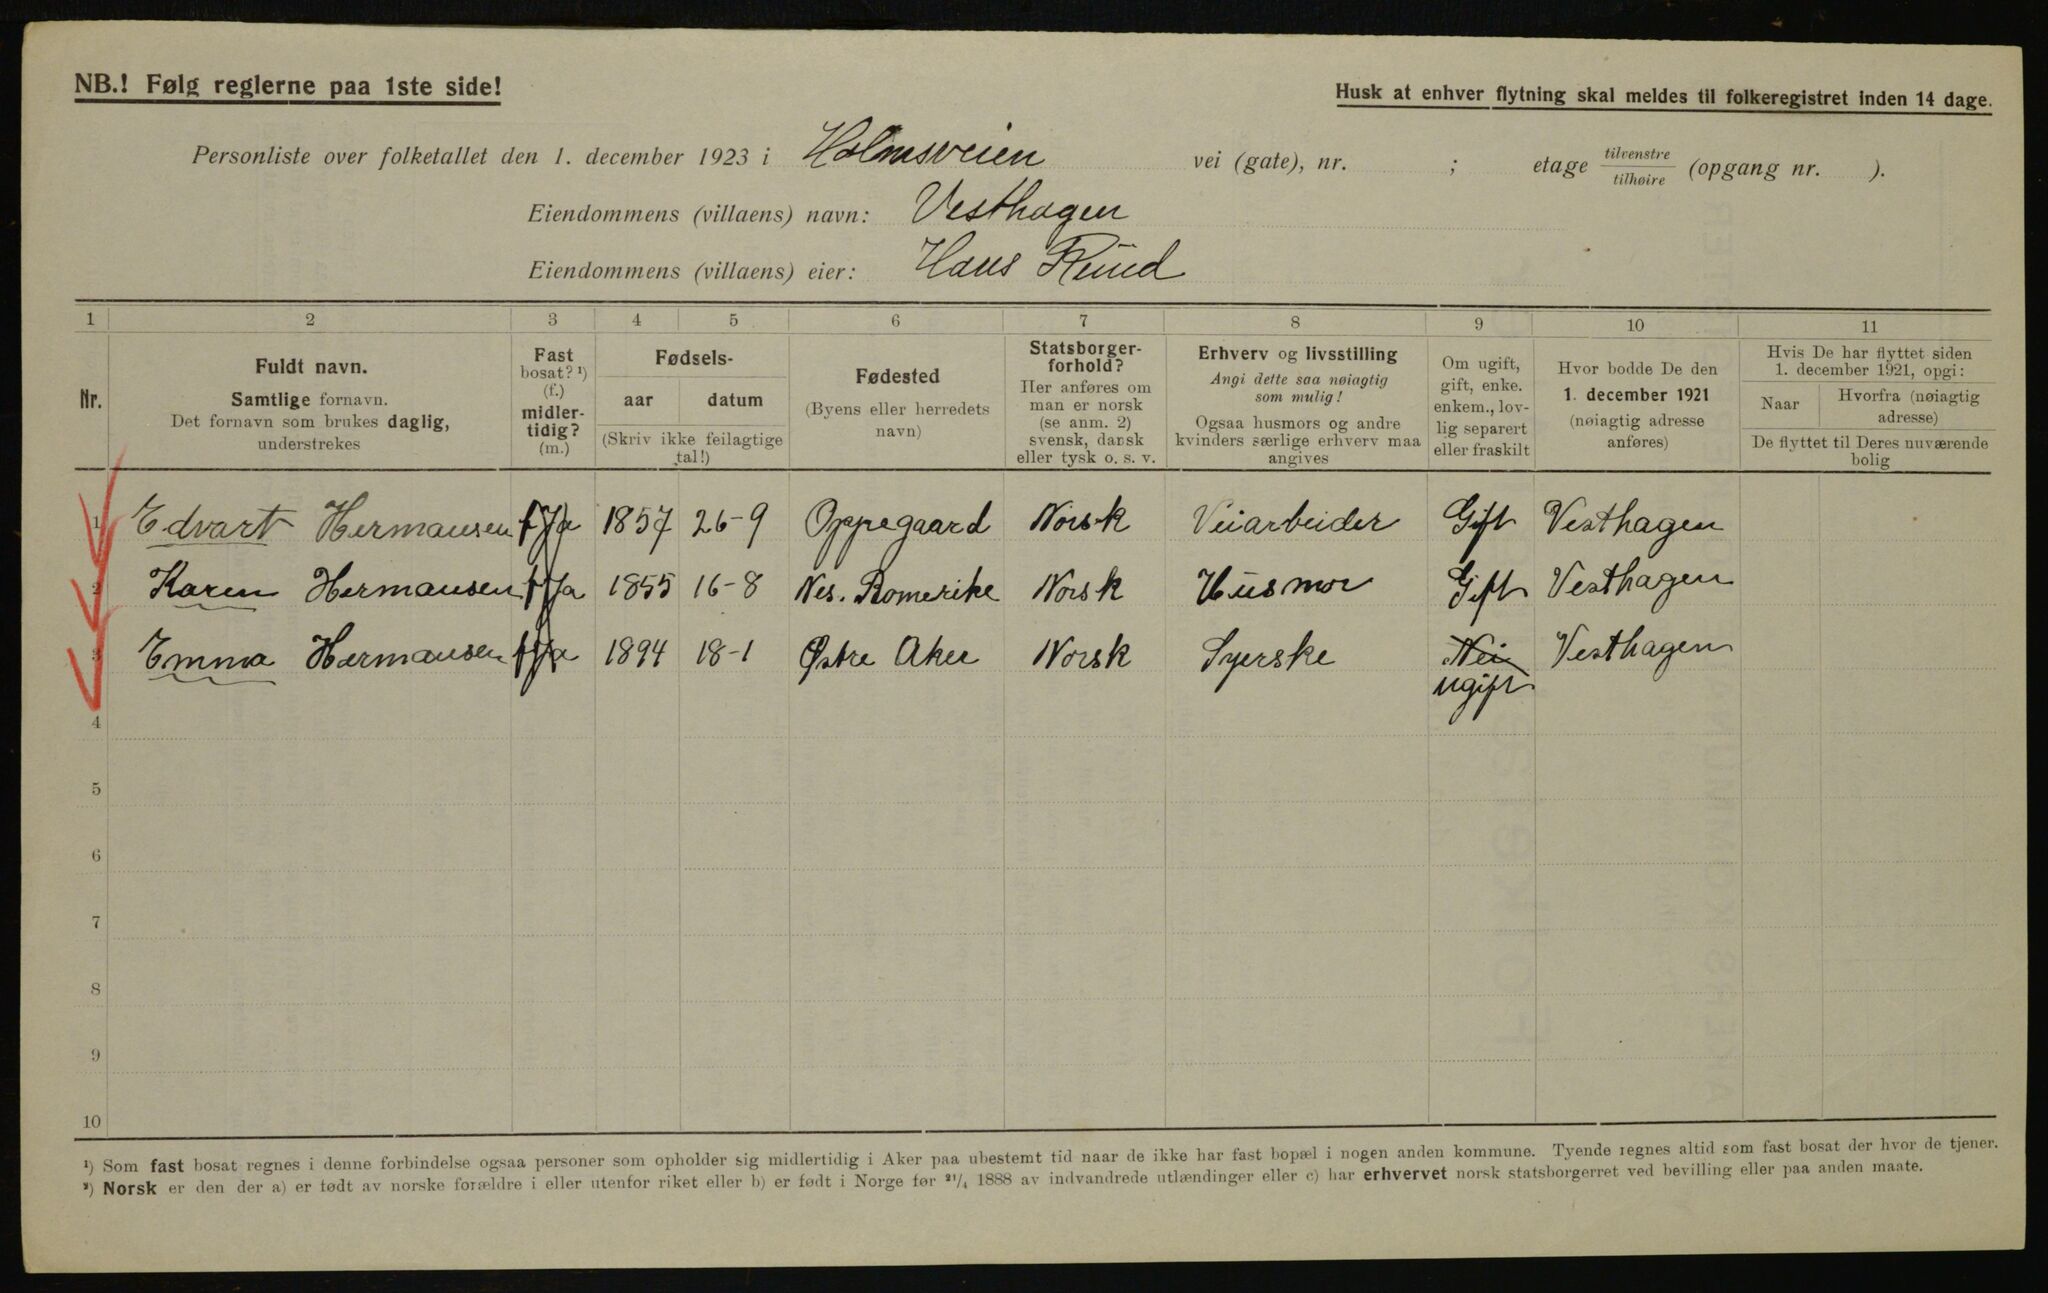 NB.! Følg reglerne paa 1ste side!
Husk at enhver flytning skal meldes til folkeregistret inden 14 dage.
Personliste over folketallet den 1. december 1923 i Holmsveien vei (gate), nr. ; etage tilvenstre tilhøire (opgang nr. ).
Eiendommens (villaens) navn: Vesthagen
Eiendommens (villaens) eier: Hans Ruud
1 2 3 4 5 6 7 8 9 10 11
Nr.
Fuldt navn.
Samtlige fornavn.
Det fornavn som brukes daglig,
understrekes
Fast
bosat? ¹)
(f.)
midler-
tidig?
(m.)
Fødsels-
aar datum
(Skriv ikke feilagtige
tal!)
Fødested
(Byens eller herredets
navn)
Statsborger-
forhold?
Her anføres om
man er norsk
(se anm. 2)
svensk, dansk
eller tysk o. s. v.
Erhverv og livsstilling
Angi dette saa nøiagtig
som mulig!
Ogsaa husmors og andre
kvinders særlige erhverv maa
angives
Om ugift,
gift, enke.
enkem., lov-
lig separert
eller fraskilt
Hvor bodde De den
1. december 1921
(nøiagtig adresse
anføres)
Hvis De har flyttet siden
1. december 1921, opgi:
Naar
Hvorfra (nøiagtig
adresse)
De flyttet til Deres nuværende
bolig
1 Edvart Hermansen f Ja 1857 26-9 Oppegaard Norsk Veiarbeider Gift Vesthagen
2 Karen Hermansen f Ja 1855 16-8 Nes. Romerike Norsk Husmor Gift Vesthagen
3 Emma Hermansen f Ja 1894 18-1 Østre Aker Norsk Syerske Nei Vesthagen
ugift
4
5
6
7
8
9
10
¹) Som fast bosat regnes i denne forbindelse ogsaa personer som opholder sig midlertidig i Aker paa ubestemt tid naar de ikke har fast bopæl i nogen anden kommune. Tyende regnes altid som fast bosat der hvor de tjener.
²) Norsk er den der a) er født av norske forældre i eller utenfor riket eller b) er født i Norge før ²¹/₄ 1888 av indvandrede utlændinger eller c) har erhvervet norsk statsborgerret ved bevilling eller paa anden maate.